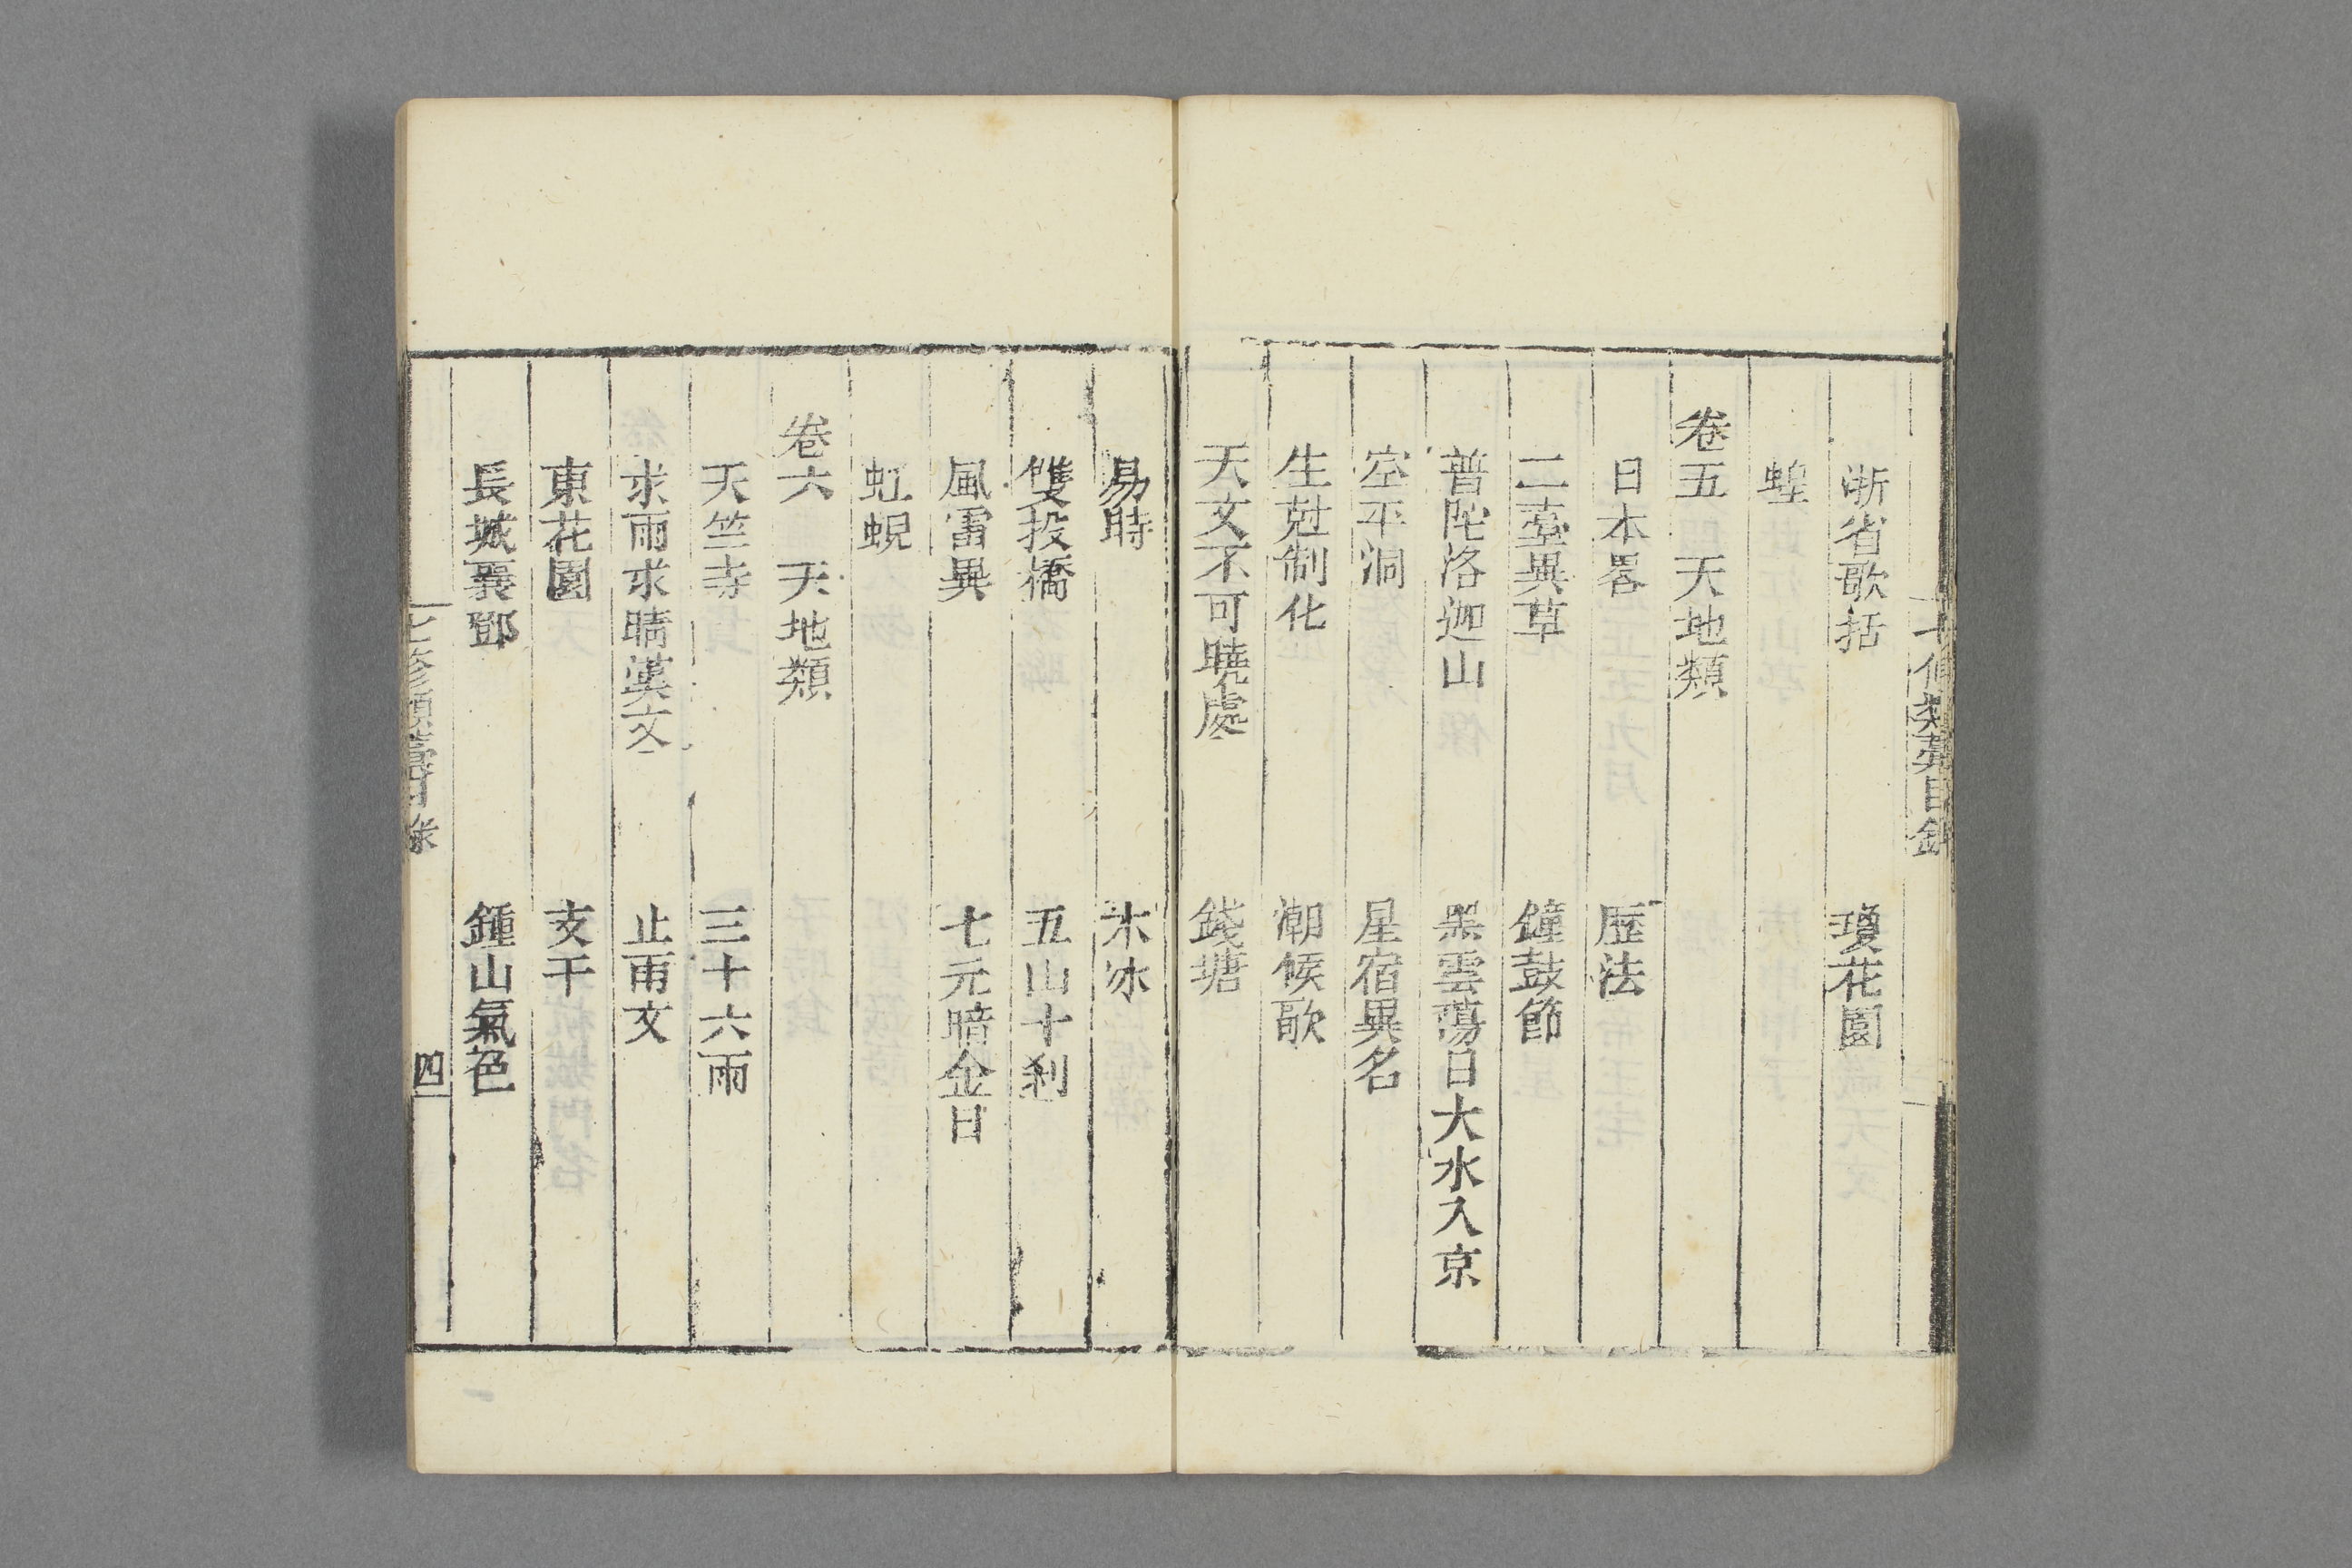 七修類藁目錄
浙省歌括　瓊花園
蝗
卷五　天地類
日本畧　歷法
二臺異草　鐘鼓節
普陀洛迦山　黑雲蕩日大水入京
空平洞　星宿異名
生尅制化　潮候歌
天文不可曉處　錢塘
易時　木冰
雙投橋　五山十剎
風雷異　七元暗金日
虹蜺
卷六　天地類
天竺寺　三十六雨
求雨求晴漢文　止雨文
東花園　支干
長城襄鄧　鍾山氣色
七修類藁目錄　四